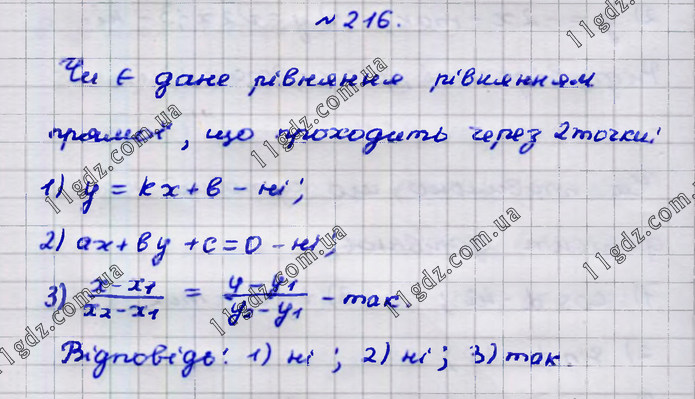 № 216.
Чи є дане рівняння рівнянням
прямої, що проходить через 2 точки:
1) y = kx + в - ні;
2) ax + вy + c = 0 - ні;
3) x - x1 / x2 - x1 = y - y1 / y2 - y1 - так
Відповідь: 1) ні; 2) ні; 3) так.
11gdz.com.ua
11gdz.com.ua
11gdz.com.ua
11gdz.com.ua
11gdz.com.ua
11gdz.com.ua
11gdz.com.ua
11gdz.com.ua